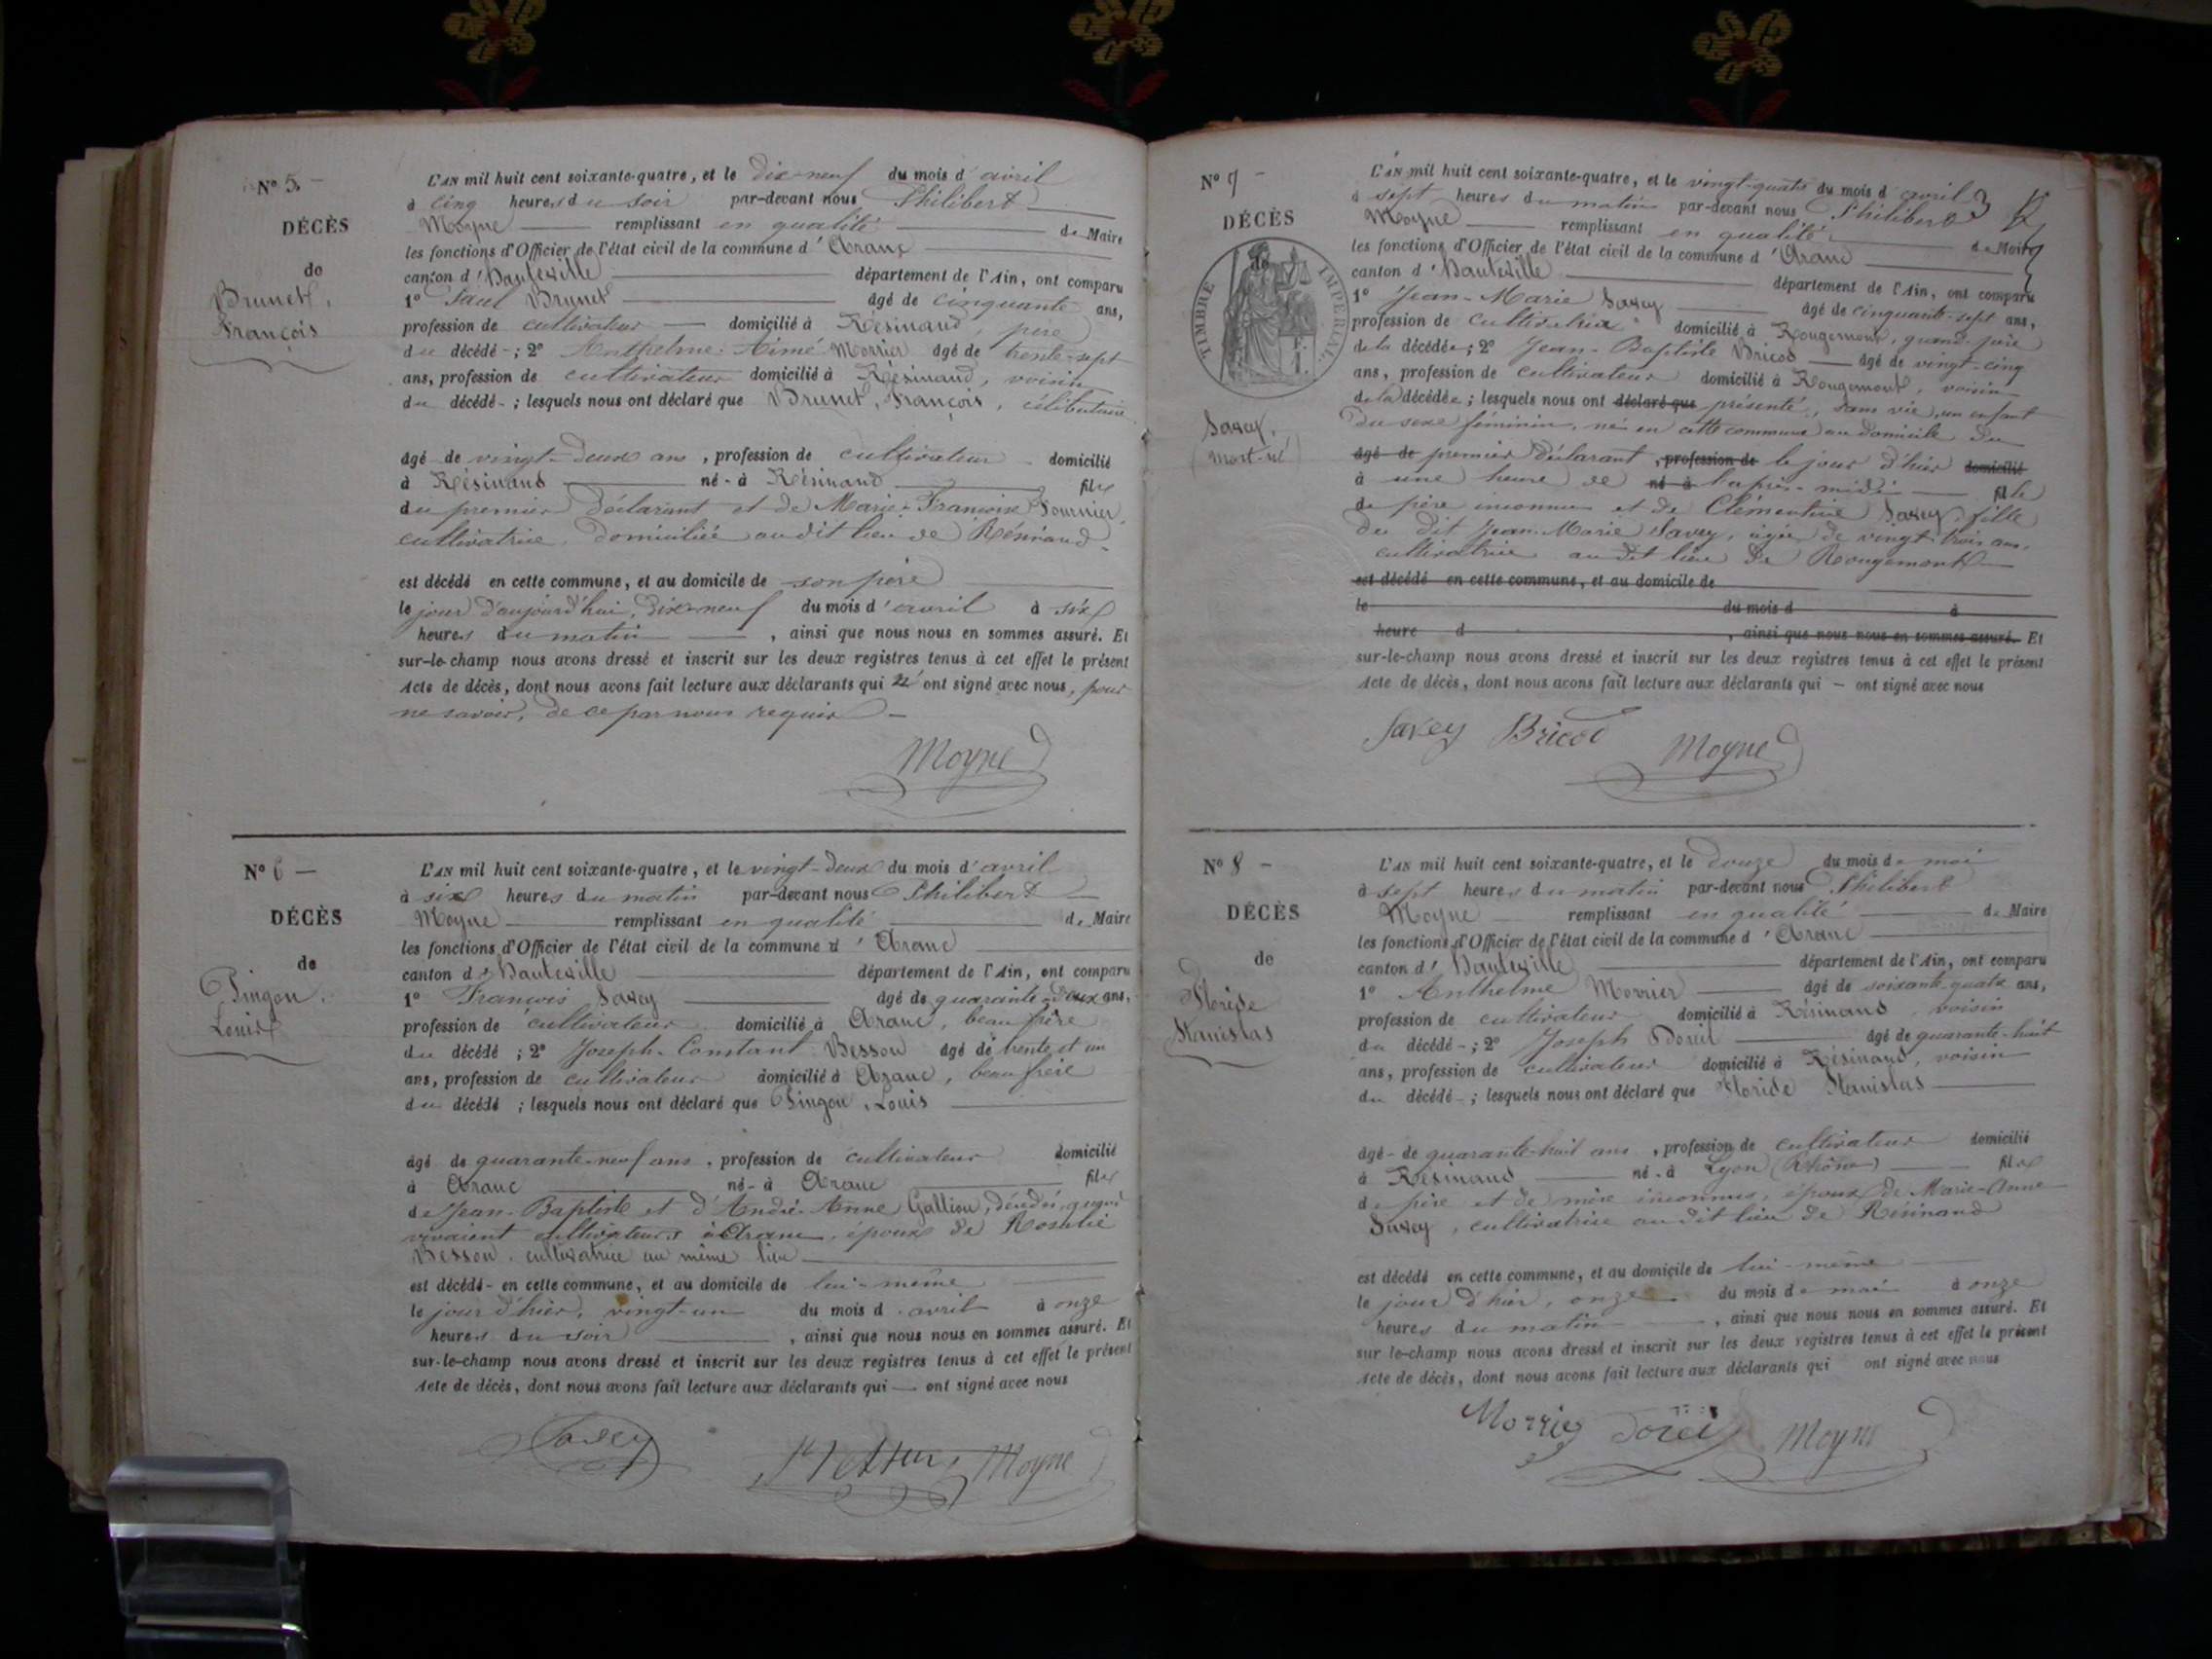 N° 5. -
DÉCÈS
de
Brunet,
François
L'AN mil huit cent soixante-quatre, et le dix-neuf du mois d'avril
à cinq heures du soir par-devant nous Philibert
Moyne remplissant en qualité de Maire
les fonctions d'Officier de l'état civil de la commune d'Aranc
canton d'Hauteville département de l'Ain, ont comparu
1° Paul Brunet âgé de cinquante ans,
profession de cultivateur domicilié à Résinand, père
du décédé -; 2° Anthelme Aimé Morrier âgé de trente-sept
ans, profession de cultivateur domicilié à Résinand, voisin
du décédé - ; lesquels nous ont déclaré que Brunet, François, célibataire
âgé de vingt-deux ans, profession de cultivateur domicilié
à Résinand né - à Résinand fils
du premier déclarant et de Marie-Françoise Fournier,
cultivatrice, domiciliée audit lieu de Résinand -
est décédé en cette commune, et au domicile de son père
le jour d'aujourd'hui, dix-neuf du mois d'avril à six
heures du matin, ainsi que nous nous en sommes assuré. Et
sur-le-champ nous avons dressé et inscrit sur les deux registres tenus à cet effet le présent
Acte de décès, dont nous avons fait lecture aux déclarants qui n'ont signé avec nous, pour
ne savoir, de ce par nous requis -
Moyne
N° 6 -
DÉCÈS
de
Pingon,
Louis
L'AN mil huit cent soixante-quatre, et le vingt-deux du mois d'avril
à six heures du matin par-devant nous Philibert
Moyne remplissant en qualité de Maire
les fonctions d'Officier de l'état civil de la commune d'Aranc
canton d'Hauteville département de l'Ain, ont comparu
1° François Savey âgé de quarante-deux ans,
profession de cultivateur domicilié à Aranc, beau frère
du décédé ; 2° Joseph-Constant Besson âgé de trente et un
ans, profession de cultivateur domicilié à Aranc, beau frère
du décédé ; lesquels nous ont déclaré que Pingon, Louis
âgé de quarante-neuf ans, profession de cultivateur domicilié
à Aranc né - à Aranc fils
de Jean-Baptiste et d'André-Anne Galliou, décédés, qui
vivaient cultivateurs à Aranc, époux de Rosalie
Besson, cultivatrice au même lieu
est décédé - en cette commune, et au domicile de lui-même
le jour d'hier, vingt-un du mois d'avril à onze
heures du soir, ainsi que nous nous en sommes assuré. Et
sur-le-champ nous avons dressé et inscrit sur les deux registres tenus à cet effet le présent
Acte de décès, dont nous avons fait lecture aux déclarants qui — ont signé avec nous
Savey Moyne
N° 7 -
DÉCÈS
TIMBRE IMPERIAL
Savey,
(mort-né)
L'AN mil huit cent soixante-quatre, et le vingt-quatre du mois d'avril 3
à sept heures du matin par-devant nous Philibert
Moyne remplissant en qualité de Maire
les fonctions d'Officier de l'état civil de la commune d'Aranc
canton d'Hauteville département de l'Ain, ont comparu
1° Jean-Marie Savey âgé de cinquante-sept ans,
profession de cultivateur domicilié à Rougemont, grand père
de la décédée ; 2° Jean-Baptiste Bricod âgé de vingt-cinq
ans, profession de cultivateur domicilié à Rougemont, voisin
de la décédée ; lesquels nous ont déclaré que présenté, sans vie, un enfant
du sexe féminin, né en cette commune au domicile du
âgé de premier déclarant, profession de le jour d'hier domicilié
à une heure de né à l'après-midi fille
de père inconnu et de Clémentine Savey, fille
du dit Jean-Marie Savey, âgée de vingt-trois ans,
cultivatrice audit lieu de Rougemont
est décédé en cette commune, et au domicile de
le du mois d à
heure d, ainsi que nous nous en sommes assuré. Et
sur-le-champ nous avons dressé et inscrit sur les deux registres tenus à cet effet le présent
Acte de décès, dont nous avons fait lecture aux déclarants qui - ont signé avec nous
Savey Bricod Moyne
N° 8 -
DÉCÈS
de
Floride
Stanislas
L'AN mil huit cent soixante-quatre, et le douze du mois de mai
à sept heures du matin par-devant nous Philibert
Moyne remplissant en qualité de Maire
les fonctions d'Officier de l'état civil de la commune d'Aranc
canton d'Hauteville département de l'Ain, ont comparu
1° Anthelme Morrier âgé de soixante quatre ans,
profession de cultivateur domicilié à Résinand, voisin
du décédé -; 2° Joseph Doreil âgé de quarante-huit
ans, profession de cultivateur domicilié à Résinand, voisin
du décédé - ; lesquels nous ont déclaré que Floride Stanislas
âgé - de quarante-huit ans, profession de cultivateur domicilié
à Résinand né - à Lyon (Rhône) fils
de père et de mère inconnus, époux de Marie-Anne
Savey, cultivatrice audit lieu de Résinand
est décédé en cette commune, et au domicile de lui-même
le jour d'hier, onze du mois de mai à onze
heures du matin, ainsi que nous nous en sommes assuré. Et
sur le-champ nous avons dressé et inscrit sur les deux registres tenus à cet effet le présent
Acte de décès, dont nous avons fait lecture aux déclarants qui ont signé avec nous
Morrier Moyne